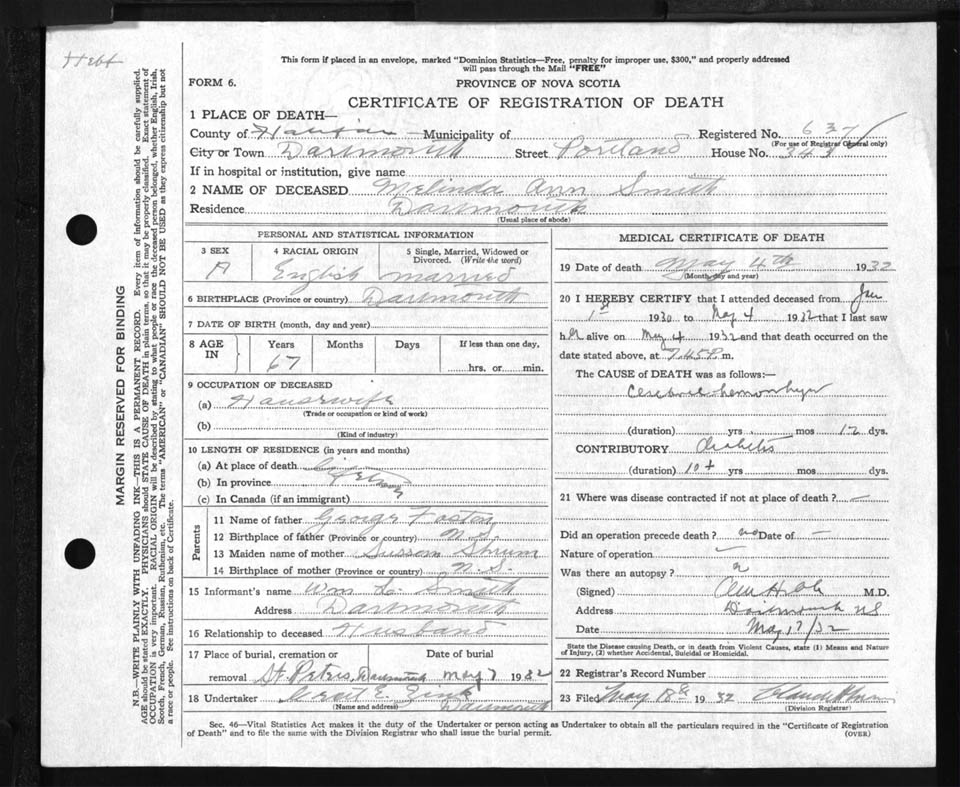 This form if placed in an envelope, marked "Dominion Statistics—Free, penalty for improper use, $300," and properly addressed
will pass through the Mail "FREE"
FORM 6.
PROVINCE OF NOVA SCOTIA
CERTIFICATE OF REGISTRATION OF DEATH
MARGIN RESERVED FOR BINDING
N.B.—WRITE PLAINLY WITH UNFADING INK—THIS IS A PERMANENT RECORD. Every item of information should be carefully supplied.
AGE should be stated EXACTLY. PHYSICIANS should STATE CAUSE OF DEATH in plain terms, so that it may be properly classified. Exact statement of
OCCUPATION is very important. RACIAL ORIGIN will be described by stating to what people or race the deceased person belonged, whether English, Irish,
Scotch, French, German, Russian, Ruthenian, etc. The terms "AMERICAN" or "CANADIAN" SHOULD NOT BE USED as they express citizenship but not
a race or people. See instructions on back of Certificate.
1 PLACE OF DEATH—
County of Halifax —Municipality of Registered No. 637
(For use of Registrar General only)
City or Town Dartmouth Street Portland House No. 343
If in hospital or institution, give name
2 NAME OF DECEASED Melinda Ann Smith
Residence Dartmouth
(Usual place of abode)
PERSONAL AND STATISTICAL INFORMATION
3 SEX 4 RACIAL ORIGIN 5 Single, Married, Widowed or
Divorced. (Write the word)
English married
6 BIRTHPLACE (Province or country) Dartmouth
7 DATE OF BIRTH (month, day and year)
8 AGE IN Years Months Days If less than one day,
67 hrs. or min.
9 OCCUPATION OF DECEASED
(a) Housewife
(Trade or occupation or kind of work)
(b)
(Kind of industry)
10 LENGTH OF RESIDENCE (in years and months)
(a) At place of death
(b) In province
(c) In Canada (if an immigrant)
Parents
11 Name of father George
12 Birthplace of father (Province or country) N.S.
13 Maiden name of mother Sussom Shrum
14 Birthplace of mother (Province or country) N.S.
15 Informant's name Wm L. Smith
Address Dartmouth
16 Relationship to deceased Husband
17 Place of burial, cremation or Date of burial
removal St. Peters, Dartmouth May 7 1932
18 Undertaker E. Zink
(Name and address) Dartmouth
MEDICAL CERTIFICATE OF DEATH
19 Date of death May 4th 1932
(Month, day and year)
20 I HEREBY CERTIFY that I attended deceased from Jan
1st 1930 to May 4 1932 that I last saw
her alive on May 4 1932 and that death occurred on the
date stated above, at 7.45 P. m.
The CAUSE of DEATH was as follows:—
Cerebral hemorrhage
(duration) yrs mos 12 dys.
CONTRIBUTORY diabetes
(duration) 10+ yrs mos dys.
21 Where was disease contracted if not at place of death? —
Did an operation precede death? no Date of —
Nature of operation —
Was there an autopsy?
(Signed) M.D.
Address Dartmouth NS
Date May 17/32
State the Disease causing Death, or in death from Violent Causes, state (1) Means and Nature
of Injury, (2) whether Accidental, Suicidal or Homicidal.
22 Registrar's Record Number
23 Filed May 18th 1932
(Division Registrar)
Sec. 46—Vital Statistics Act makes it the duty of the Undertaker or person acting as Undertaker to obtain all the particulars required in the "Certificate of Registration
of Death" and to file the same with the Division Registrar who shall issue the burial permit. (OVER)